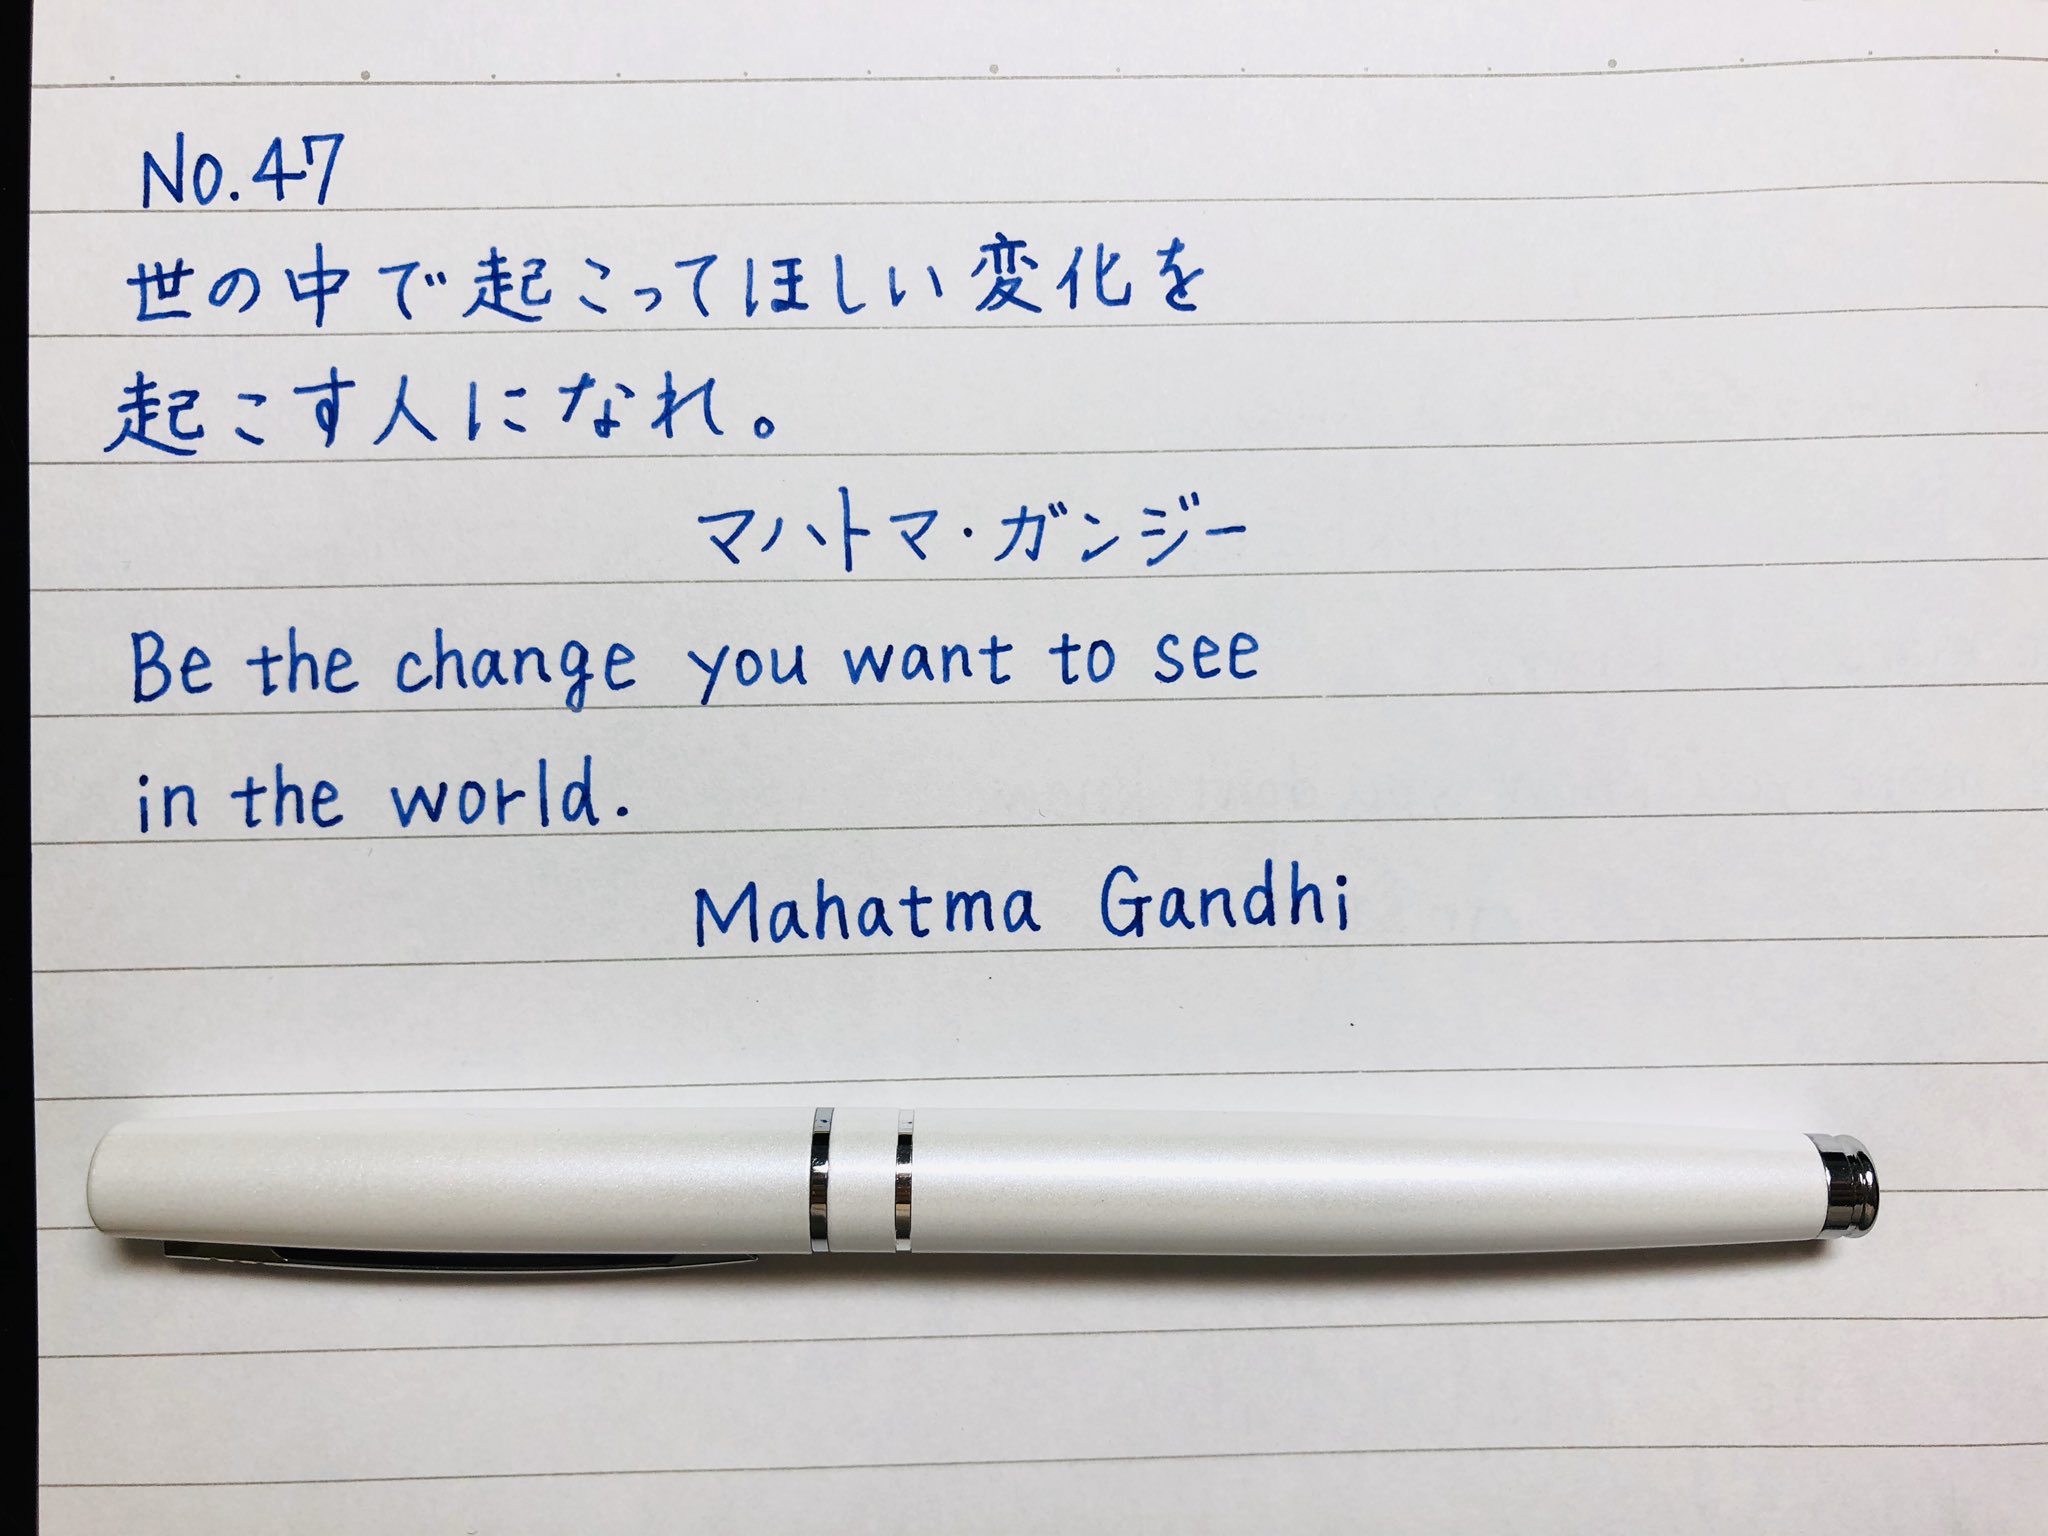 No.47
世の中で起こってほしい変化を
起こす人になれ。
マハトマ・ガンジー
Be the change you want to see
in the world.
Mahatma Gandhi